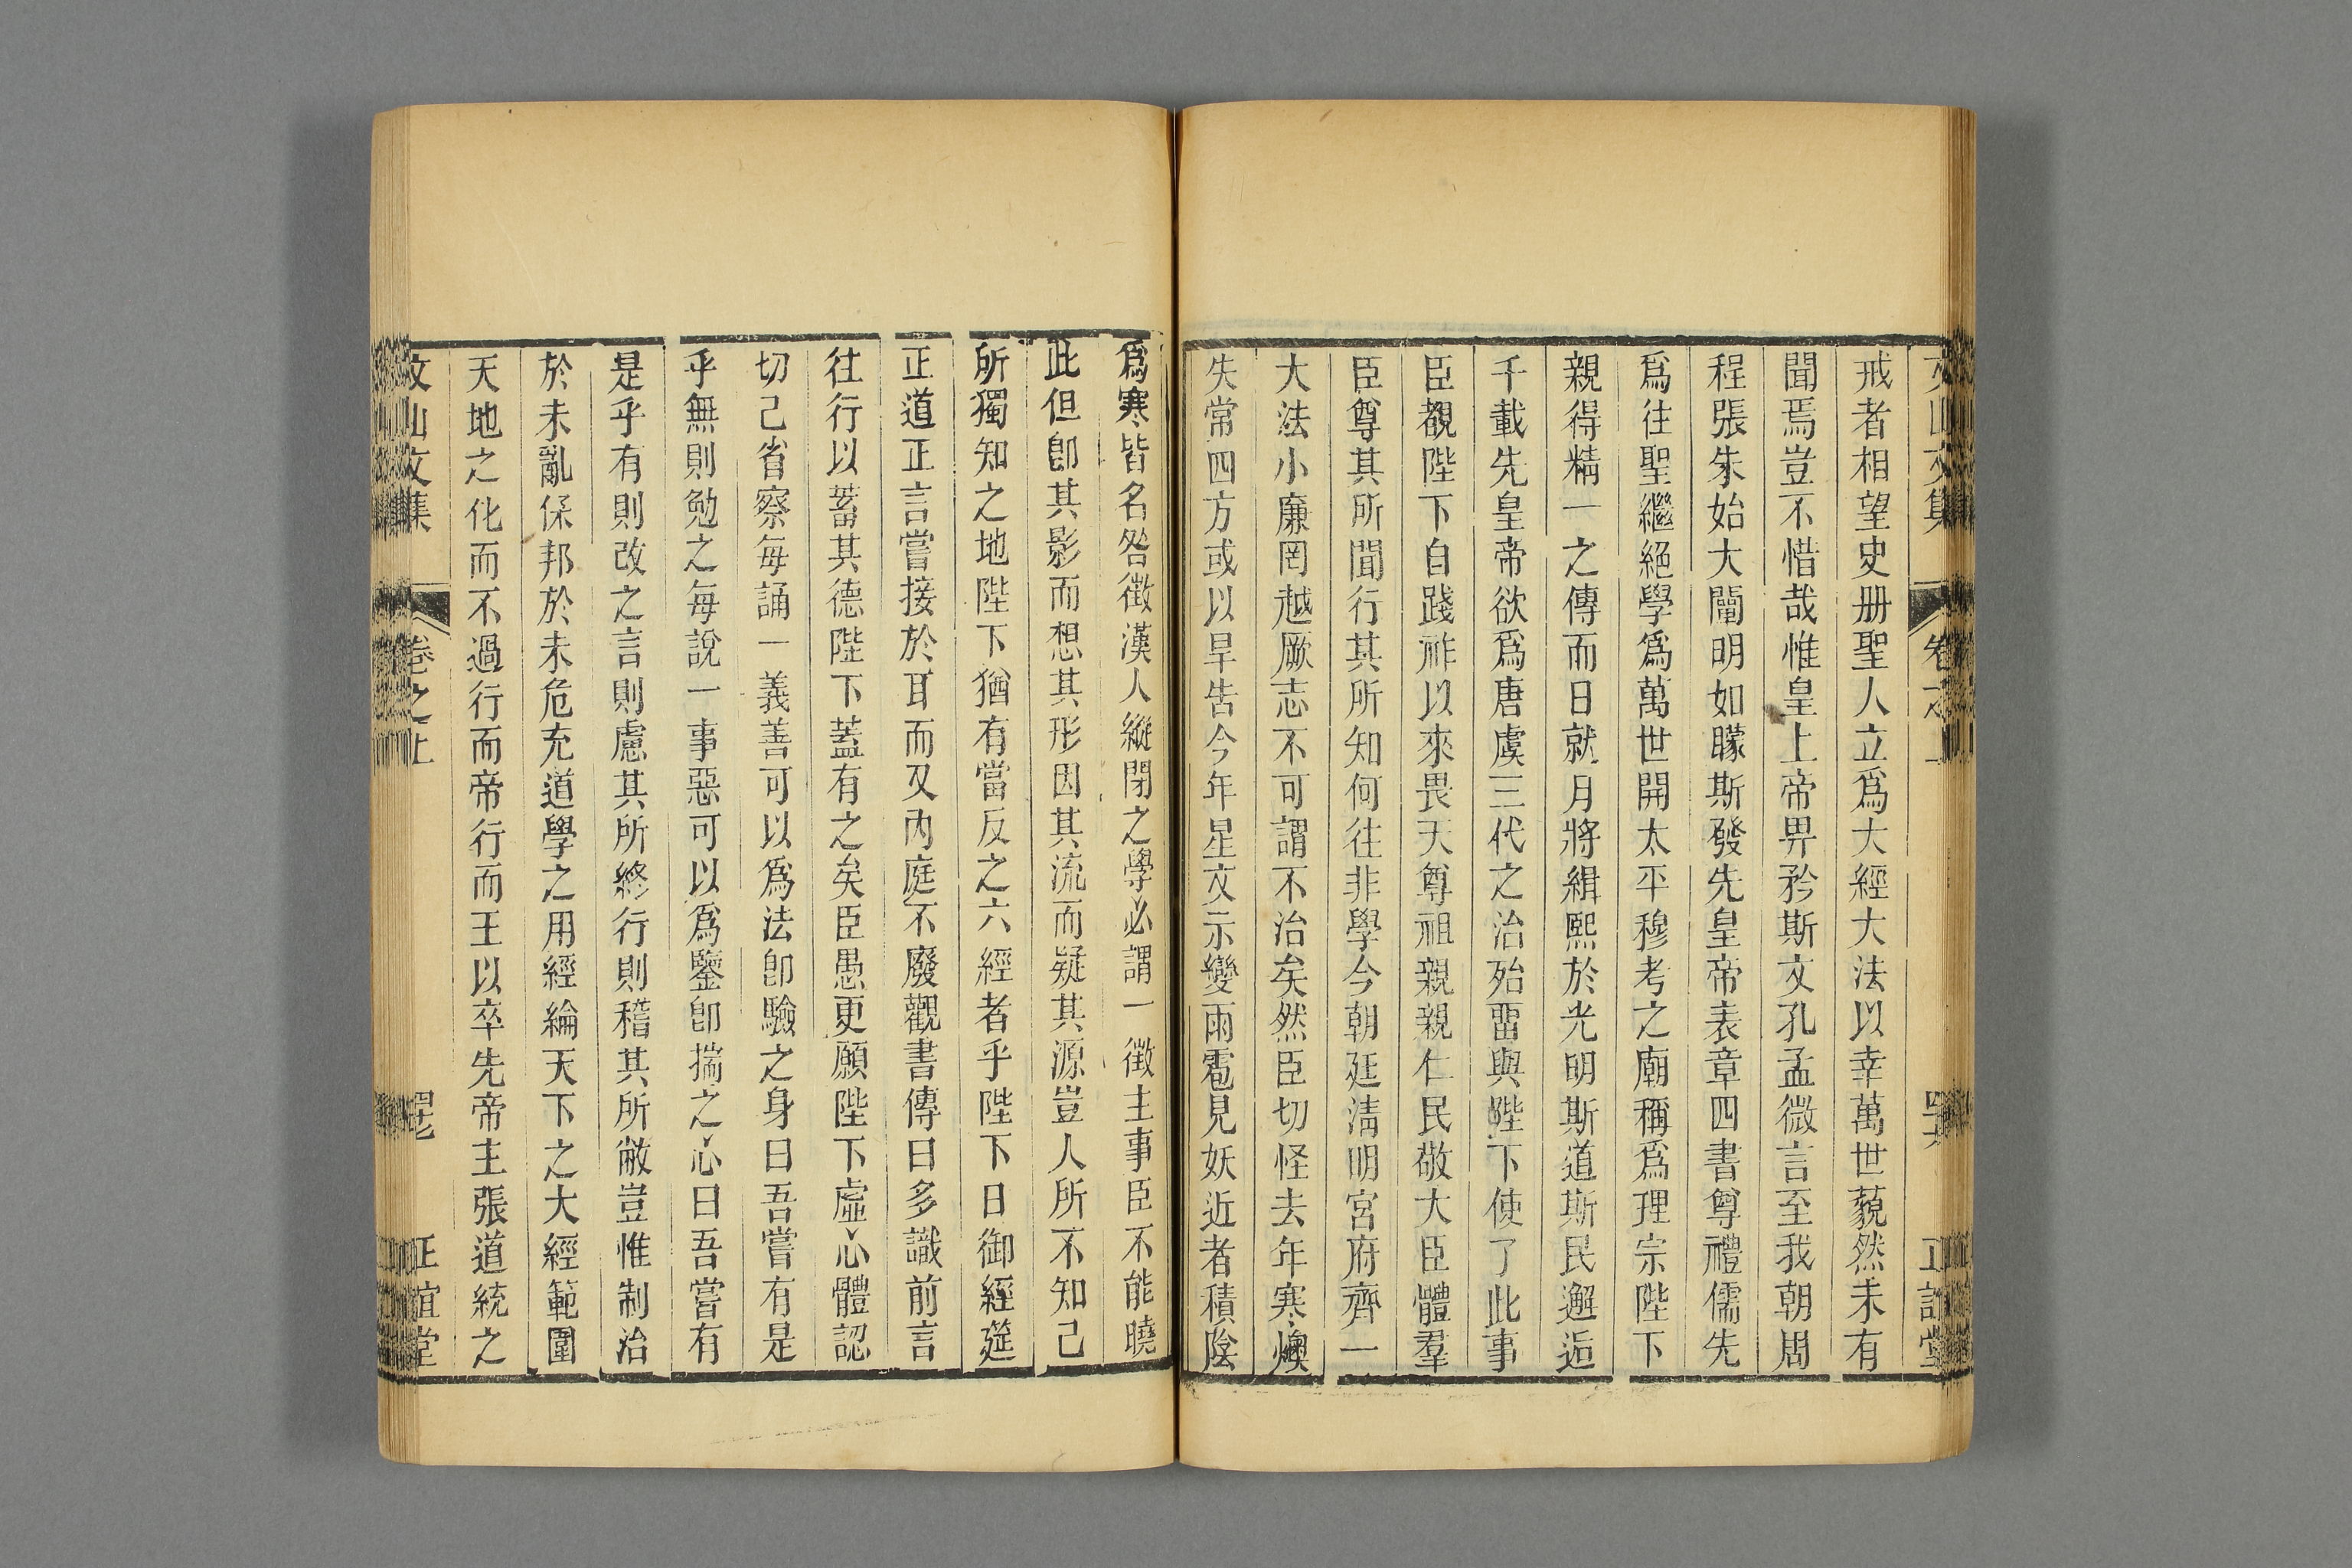 戒者相望史册聖人立爲大經大法以幸萬世藐然未有
聞焉豈不惜哉惟皇上帝畀矜斯文孔孟微言至我朝周
程張朱始大闡明如矇斯發先皇帝表章四書尊禮儒先
爲往聖繼絕學爲萬世開太平穆考之廟稱爲理宗陛下
親得精一之傳而日就月將緝熙於光明斯道斯民邂逅
千載先皇帝欲爲唐虞三代之治殆畱與陛下使了此事
臣覩陛下自踐祚以來畏天尊祖親親仁民敬大臣體羣
臣尊其所聞行其所知何往非學今朝廷淸明宮府齊一
大法小廉罔越厥志不可謂不治矣然臣切怪去年寒燠
失常四方或以旱告今年星文示變雨雹見妖近者積陰
爲寒皆名咎徵漢人縱閉之學必謂一徵主事臣不能曉
此但卽其影而想其形因其流而疑其源豈人所不知己
所獨知之地陛下猶有當反之六經者乎陛下日御經筵
正道正言嘗接於耳而又內庭不廢觀書傳曰多識前言
往行以蓄其德陛下蓋有之矣臣愚更願陛下虛心體認
切己省察每誦一義善可以爲法卽驗之身曰吾嘗有是
乎無則勉之每說一事惡可以爲鑒卽揣之心曰吾嘗有
是乎有則改之言則慮其所終行則稽其所敝豈惟制治
於未亂保邦於未危充道學之用經綸天下之大經範圍
天地之化而不過行而帝行而王以卒先帝主張道統之
文山文集 卷之上 四七 正誼堂